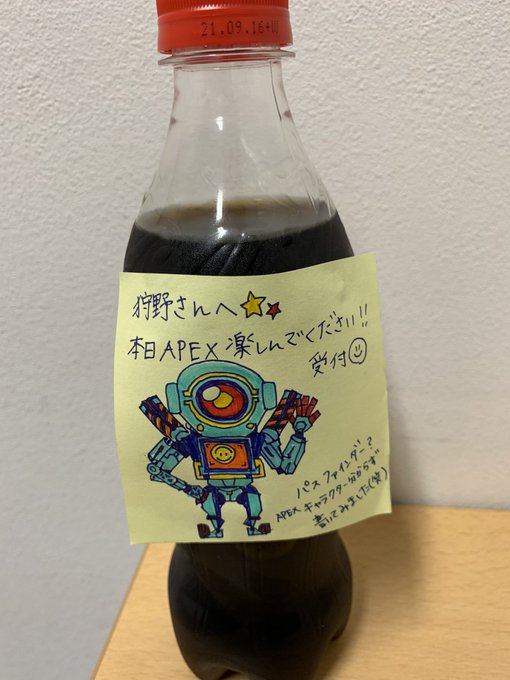 21.09.16+U
狩野さんへ
本日APEX楽しんでください!!
受付
パスファインダー?
APEXキャラクター分からず
書いてみました(笑)